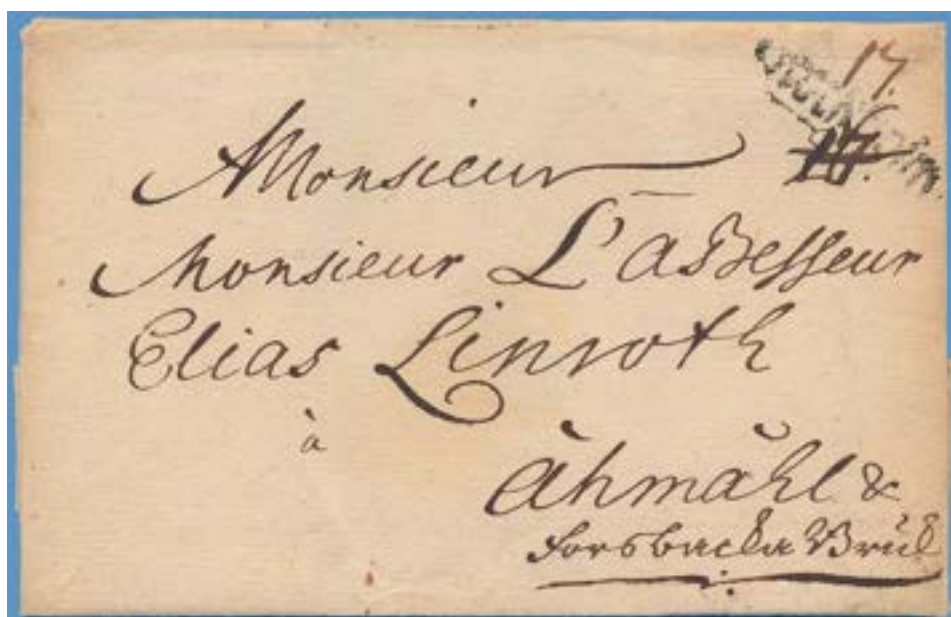 17.
Monsieur
Monsieur L'assesseur
Elias Linroth
à
Åhmåhl &
Forsbacka Bruk